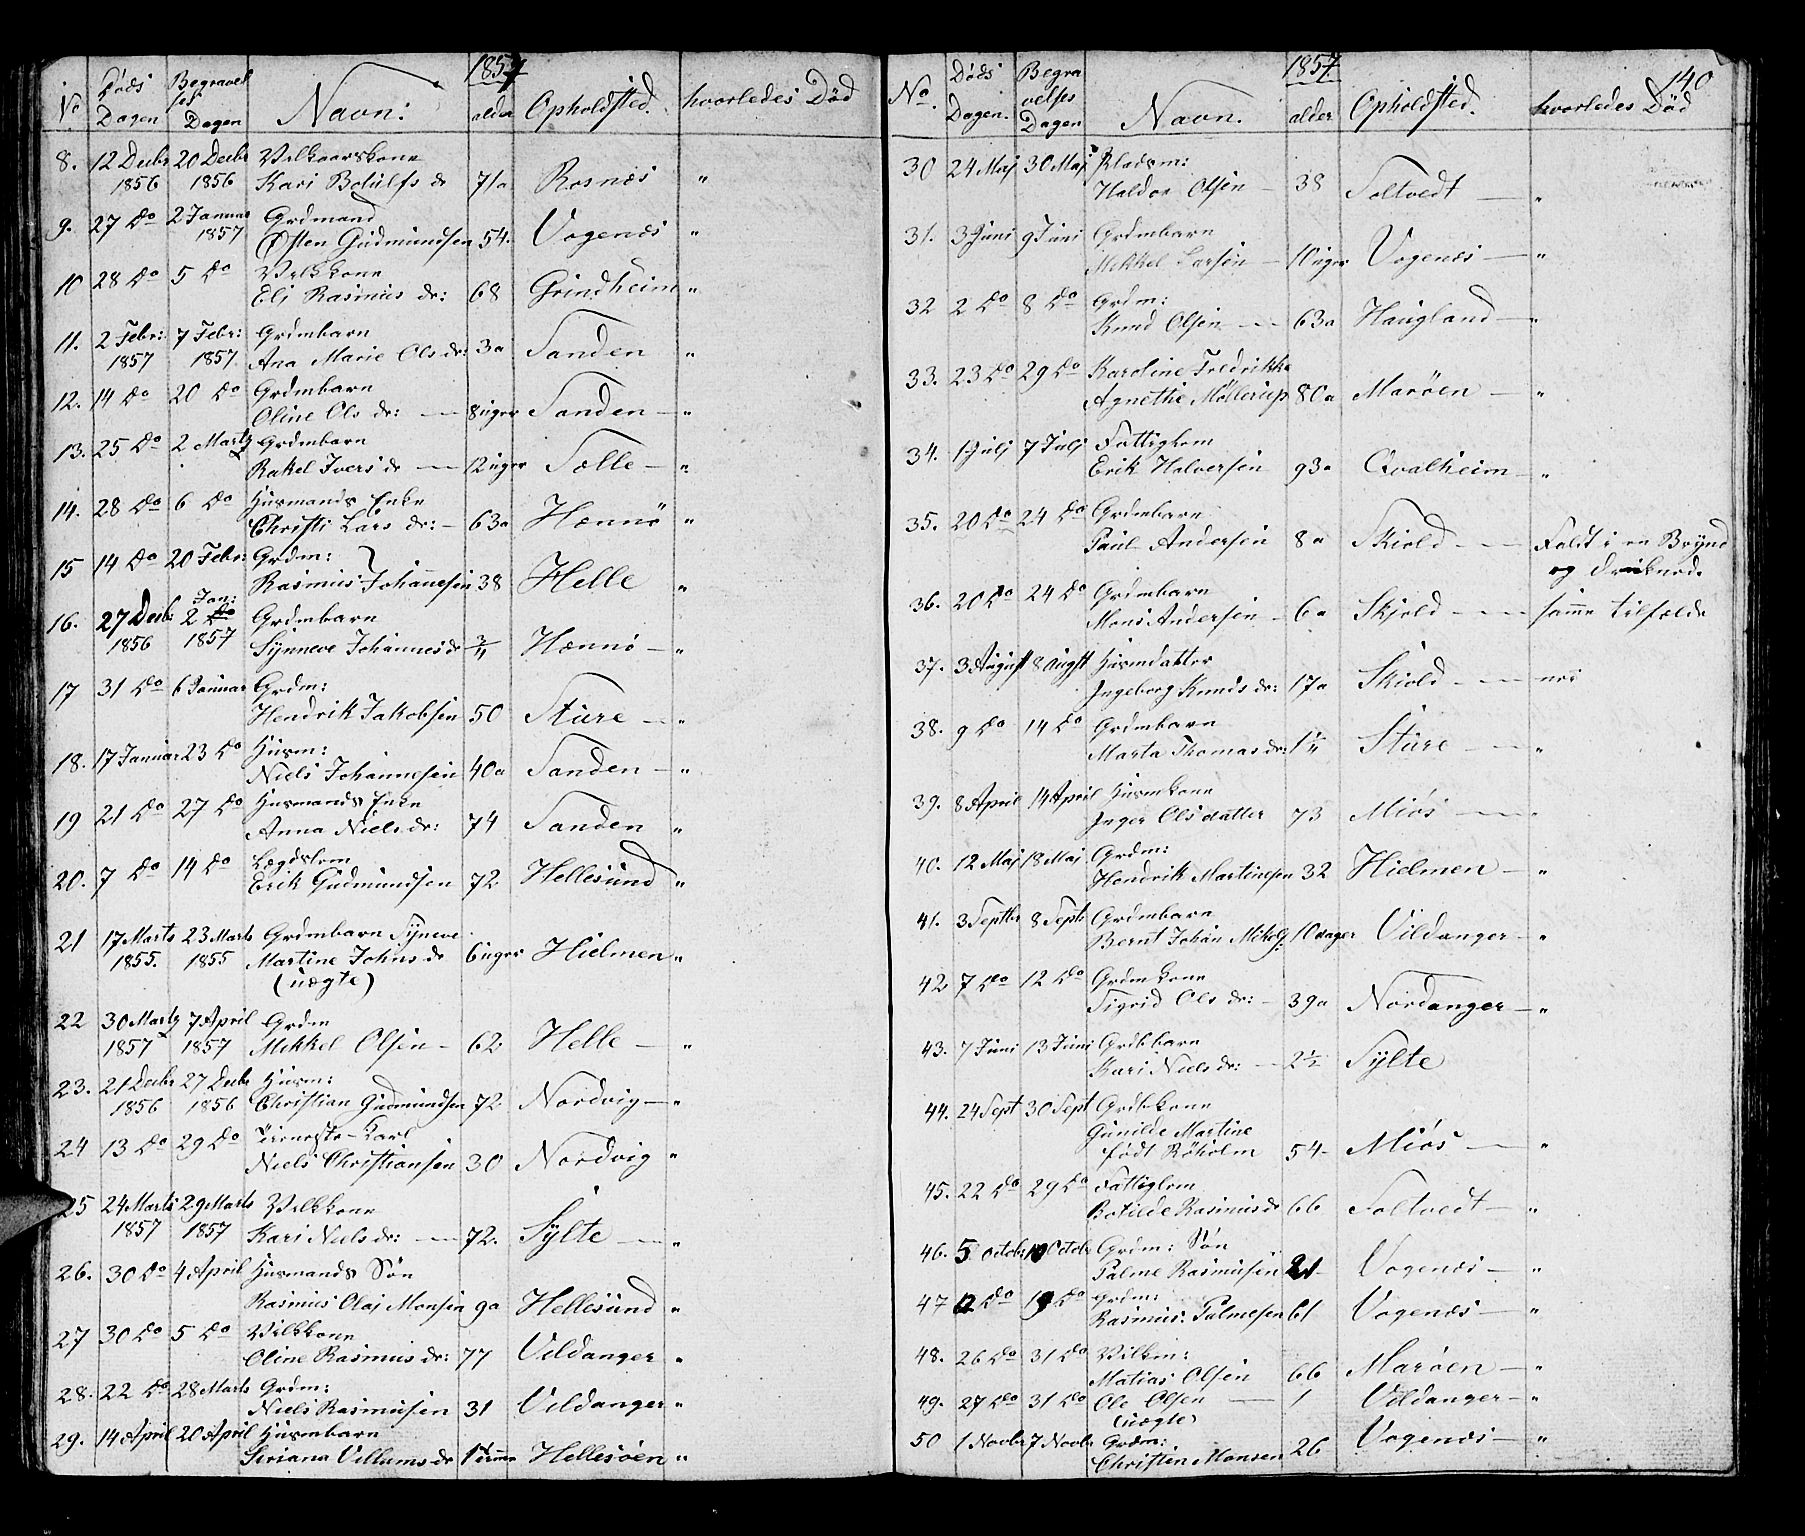 1857
No Døds Dagen Begravelses Dagen Navn: alder Opholdsted. hvorledes Død
8. 12 Decbr 20 Decbr Vilkaarskone
1856 1856 Kari Botulfs dr 71a Rosnæs "
9. 27 Do 2 Januar Grdmand
1857 Østen Gudmundsen 54. Vogenæs "
10 28 Do 5 Do Vilkkone
Eli Rasmus dr: 68 Grindheim "
11. 2 Febr: 7 Febr: Grdmbarn
1857 1857. Ana Marie Ols dr: 3a Sanden "
12. 14 Do 20 Do Grdmbarn
Oline Ols dr: — 8 uger Sanden — "
13. 25 Do 2 Martz Grdmbarn
Rakel Ivers dr — 12 uger Solle — "
14. 28 Do 6 Do Husmands Enke
Christi Lars dr: — 63a Hennø "
15 14 Do 20 Febr: Grdm:
Rasmus Johannesen 38 Helle "
16. 27 Decbr 2 Jan: Grdmbarn
1856 1857 Synneve Johannes dr Hennø — "
17 31 Do 6 Januar Grdm:
Hendrik Jakobsen 50 Sture — "
18. 17 Januar 23 Do Husm:
Niels Johannesen 40a Sanden — "
19 21 Do 27 Do Husmands Enke
Anna Niels dr: 74 Sanden "
20. 7 Do 14 Do Lægdslem
Erik Gudmundsen 72 Hellesund "
21 17 Marts 23 Marts Grdmbarn Syneve
1855. 1855 Martine Johns dr 6 uger Hielmen "
(uægte)
22 30 Martz 7 April Grdm
1857 1857 Mikkel Olsen — 62 Helle — "
23. 21 Decbr 27 Decbr Husm:
1856 1856 Christian Gudmundsen 72 Nordvig — "
24 13 Do 29 Do Tieneste-Karl
Niels Christiansen 30 Nordvig "
25 24 Marts 29 Marts Vilkkone
1857 1857 Kari Niels dr: — 72. Sylte — "
26. 30 Do 4 April Husmands Søn
Rasmus Olaj Monsen 9a Hellesund "
27 30 Do 5 Do Vilkkone
Oline Rasmus dr: 77 Vildanger "
28. 22 Do 28 Marts Grdm:
Niels Rasmusen 31 Vildanger "
29. 14 April 20 April Husmbarn
Seriana Villums dr Hellesøen "
140
1857
No. Døds Dagen. Begravelses Dagen Navn. alder Opholdsted. hvorledes Død
30 24 Maj 30 Maj Pladsm:
Haldor Olsen — 38 Soltvedt — "
31. 3 Juni 9 Juni Grdmbarn
Mikkel Larsen — 10 uger Vogenæs — "
32 2 Do 8 Do Grdm:
Knud Olsen — 63a Haugland — "
33. 23 Do 29 Do Karoline Fredrikke
Agnethe Møllerup 80a Marøen — "
34. 1 Julj 7 Julj Fattiglem
Erik Halversen 93a Qvalheim — "
35. 20 Do 24 Do Grdmbarn
Paul Andersen 8a Skiold — Faldt i en Brynd
og druknede
36. 20 Do 24 Do Grdmbarn
Mons Andersen — 6a Skjold — samme tilfælde
37. 3 August 8 Augst Husmdatter
Ingeborg Knuds dr: 17a Skiold — nei
38. 9 Do 14 Do Grdmbarn
Marta Thomas dr: Sture — "
39. 8 April 14 April Husmkone
Inger Olsdatter 73 Miøs — "
40. 12 Maj 18 Maj Grdm:
Hendrik Martinesen 32 Hielmen — "
41. 3 Septbr 8 Septb Grdmbarn
Bernt Johan Mikels: 10 dager Vildanger — "
42 7 Do 12 Do Grdmkone
Sigrid Ols dr: — 39a Nordanger — "
43. 7 Juni 13 Juni Grdbbarn
Kari Niels dr: — 2½ Sylte
44. 24 Sept 30 Sept Grdbkone
Gunilde Martine
født Røholm 54 — Miøs — "
45. 22 Do 29 Do Fattiglem
Botilde Rasmus dr 66 Soltvedt — "
46. 5 Octobr 10 Octobr Grdm: Søn
Palme Rasmusen 21 — Vogenæs — "
47 12 Do 19 Do Grdm:
Rasmus: Palmesen 61 Vogenæs — "
48. 26 Do 31 Do Vilkm:
Matias Olsen 66 Marøen — "
49. 27 Do 31 Do Ole Olsen — 1 Vildanger — "
(uægte)
50 1 Novbr 7 Novbr Grdm:
Christen Monsen 26 Vogenæs — "